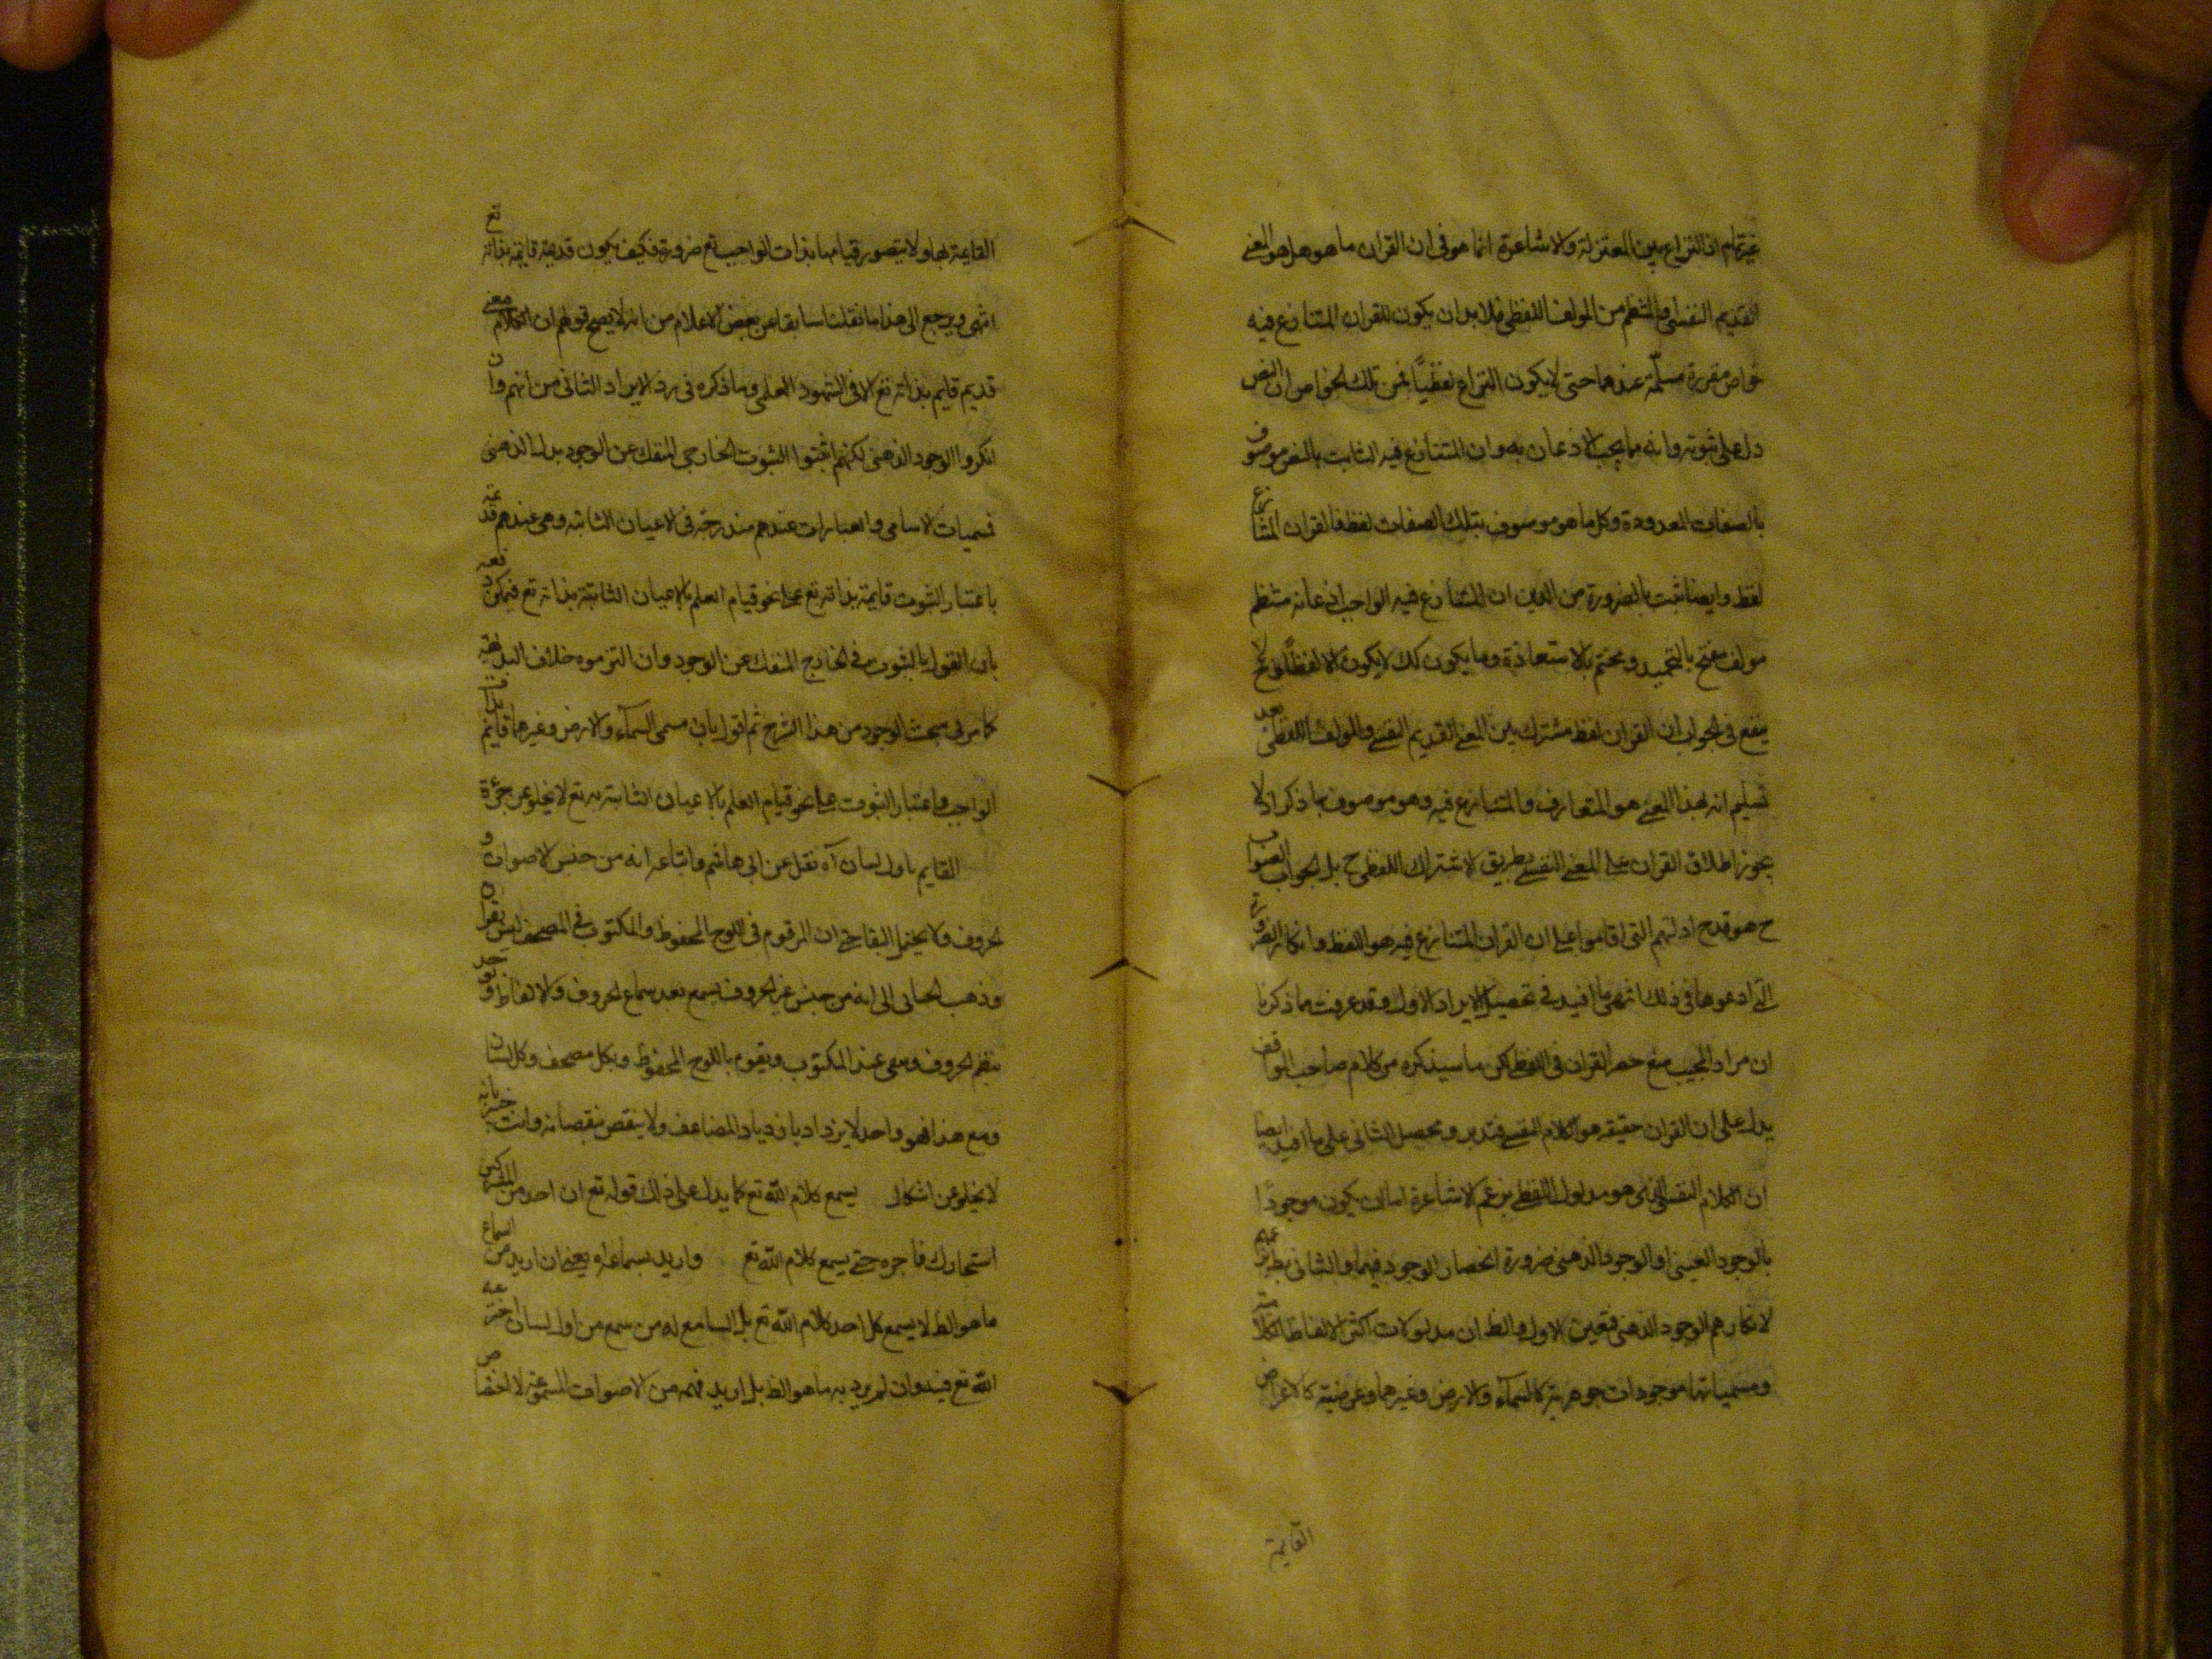 غيرتمام ان النزاع بين المعتزلة والاشاعرة انما هو فى ان القران ما هو هل هو المعنى
القديم النفسى او المنتظم من المولف اللفظى فلا بد ان يكون للقران المتنازع فيه
خواص مقررة مسلّمة عندهما حتى لا يكون النزاع لفظيًا فمن تلك الخواص ان النص
دل على ثبوته وانه مما يجب الاذعان به وان المتنازع فيه الثابت بالنص موصوف
بالصفات المعدودة وكل ما هو موصوف بتلك الصفات لفظ فالقران المتنازع
لفظ وايضا ثبت بالضرورة من الدين ان المتنازع فيه الواجب اذعانه منتظم
مولف مفتتح بالتحميد ومختتم بالاستعاذة وما يكون كك لا يكون الا لفظًا ولا
ينفع فى الجواب ان القران لفظ مشترك بين المعنى القديم النفسى والمولف اللفظى بعد
تسليم انه بهذا المعنى هو المتعارف والمتنازع فيه وهو موصوف بما ذكر اذ لا
يجوز اطلاق القران على المعنى النفسى بطريق الاشتراك اللفظى ح بل الجواب الصواب
ح هو قدح ادلتهم التى اقاموا على ان القران المتنازع فيه هو اللفظ وانكار الضرورة
التى ادعوها فى ذلك انتهى ما افيد فى تحصيل الايراد الاول وقد عرفت مما ذكرنا
ان مراد المجيب منع حصر القران فى اللفظ لكن ما سيذكره من كلام صاحب المواقف
يدل على ان القران حقيقه هو الكلام النفسى فتدبر ومحصل الثانى على ما افيد ايضا
ان الكلام النفسى الذى هو مدلول اللفظ بزعم الاشاعرة اما ان يكون موجودًا
بالوجود العينى او الوجود الذهنى ضرورة انحصار الوجود فيهما والثانى بط
لانكارهم الوجود الذهنى فتعين الاول والظ ان مدلولات اكثر الالفاظ
ومسمياتها موجودات جوهرية كالسمآء والارض وغيرهما وعرضية كالاعراض
القايمة
القايمة بها ولا يتصور قيامها بذات الواجب تع ضرورة فكيف يكون قديمة قايمة بذاته تع
انتهى ويرجع الى هذا ما نقلناه سابقا عن بعض الاعلام من انه لا يصح قولهم ان معنى الكلام
قديم قايم بذاته تع الا فى الشهود العلمى وما ذكره فى رد الايراد الثانى من انهم وان
انكروا الوجود الذهنى لكنهم اثبتوا الثبوت الخارجى المنفك عن الوجود بدل الذهنى
فمسميات الاسامى والعبارات عندهم مندرجة فى الاعيان الثابته وهى عندهم قديمة
باعتبار الثبوت قايمة بذاته تع على نحو قيام العلم بالاعيان الثابتة بذاته تع فيمكن دفعه
بان القول بالثبوت فى الخارج المنفك عن الوجود وان التزموه خلاف البداهة
كما مر فى مبحث الوجود من هذا الشرح ثم القول بان مسمى السمآء والارض وغيرهما قايم بذات
الواجب باعتبار الثبوت على نحو قيام العلم بالاعيان الثابتة به تع لا يخلو عن جرءة
القايم باول لسان آه نقل عن ابى هاشم واتباعه انه من جنس الاصوات و
الحروف ولا يحتمل البقا حتى ان المرقوم فى اللوح المحفوظ والمكتوب فى المصحف ليس
وذهب الجبائى الى انه من جنس غير الحروف يسمع بعد سماع الحروف والالفاظ ويوجد
بنظم الحروف وهى عند المكتوب ويقوم باللوح المحفوظ وبكل مصحف وكل لسان
ومع هذا فهو واحد لا يزداد بازدياد المضاعف ولا ينقص بنقصانه وانت خبير بانه
لا يخلو عن اشكال يسمع كلام الله تع كما يدل على ذلك قوله تع ان احد من المشركين
استجارك فاجره حتى يسمع كلام الله تع واريد بسماعه اه يعنى ان اريد من السماع
ما هو الظ لا يسمع كل احد كلام الله تع بل السامع له من سمع من اول لسان اخترعه
الله تع فيه وان لم يرد به ما هو الظ بل اريد فهمه من الاصوات المسموعة لا اختصاص